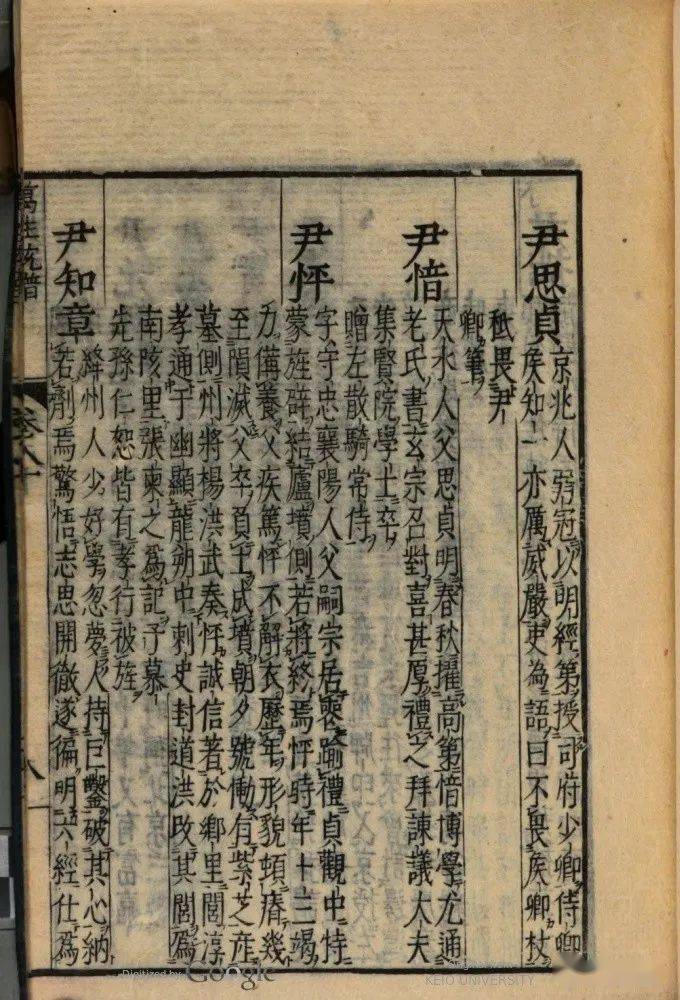 尹思貞
京兆人弱冠以明經第授司府少卿侍卿
侯知一亦厲威嚴吏為語曰不畏侯卿杖
秪畏尹
卿筆
尹愔
天水人父思貞明春秋擢高第愔博學尤通
老氏書玄宗召對喜甚厚禮之拜諫議大夫
集賢院學士卒
贈左散騎常侍
尹怦
字守忠襄陽人父嗣宗居喪踰禮貞觀中特
蒙旌辟結廬墳側若將終焉怦時年十三竭
力備養父疾篤怦不解衣歷年形貌頓瘠幾
至隕滅父卒負土成墳朝夕號慟有紫芝產
墓側州將楊洪武奏怦誠信著於鄉里閭淳
孝通于幽顯龍朔中刺史封道洪改其閭爲
南陔里張柬之爲記子慕
先孫仁恕皆有孝行被旌
尹知章
絳州人少好學忽夢人持巨鑿破其心納
若劑焉驚悟志思開徹遂徧明六經仕爲
萬姓統譜
卷八十
Digitized by Google
KEIO UNIVERSITY